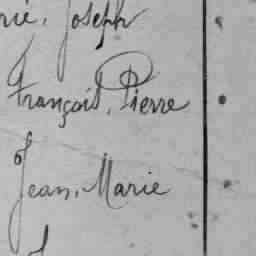 rie, Joseph
François, Pierre
Jean, Marie